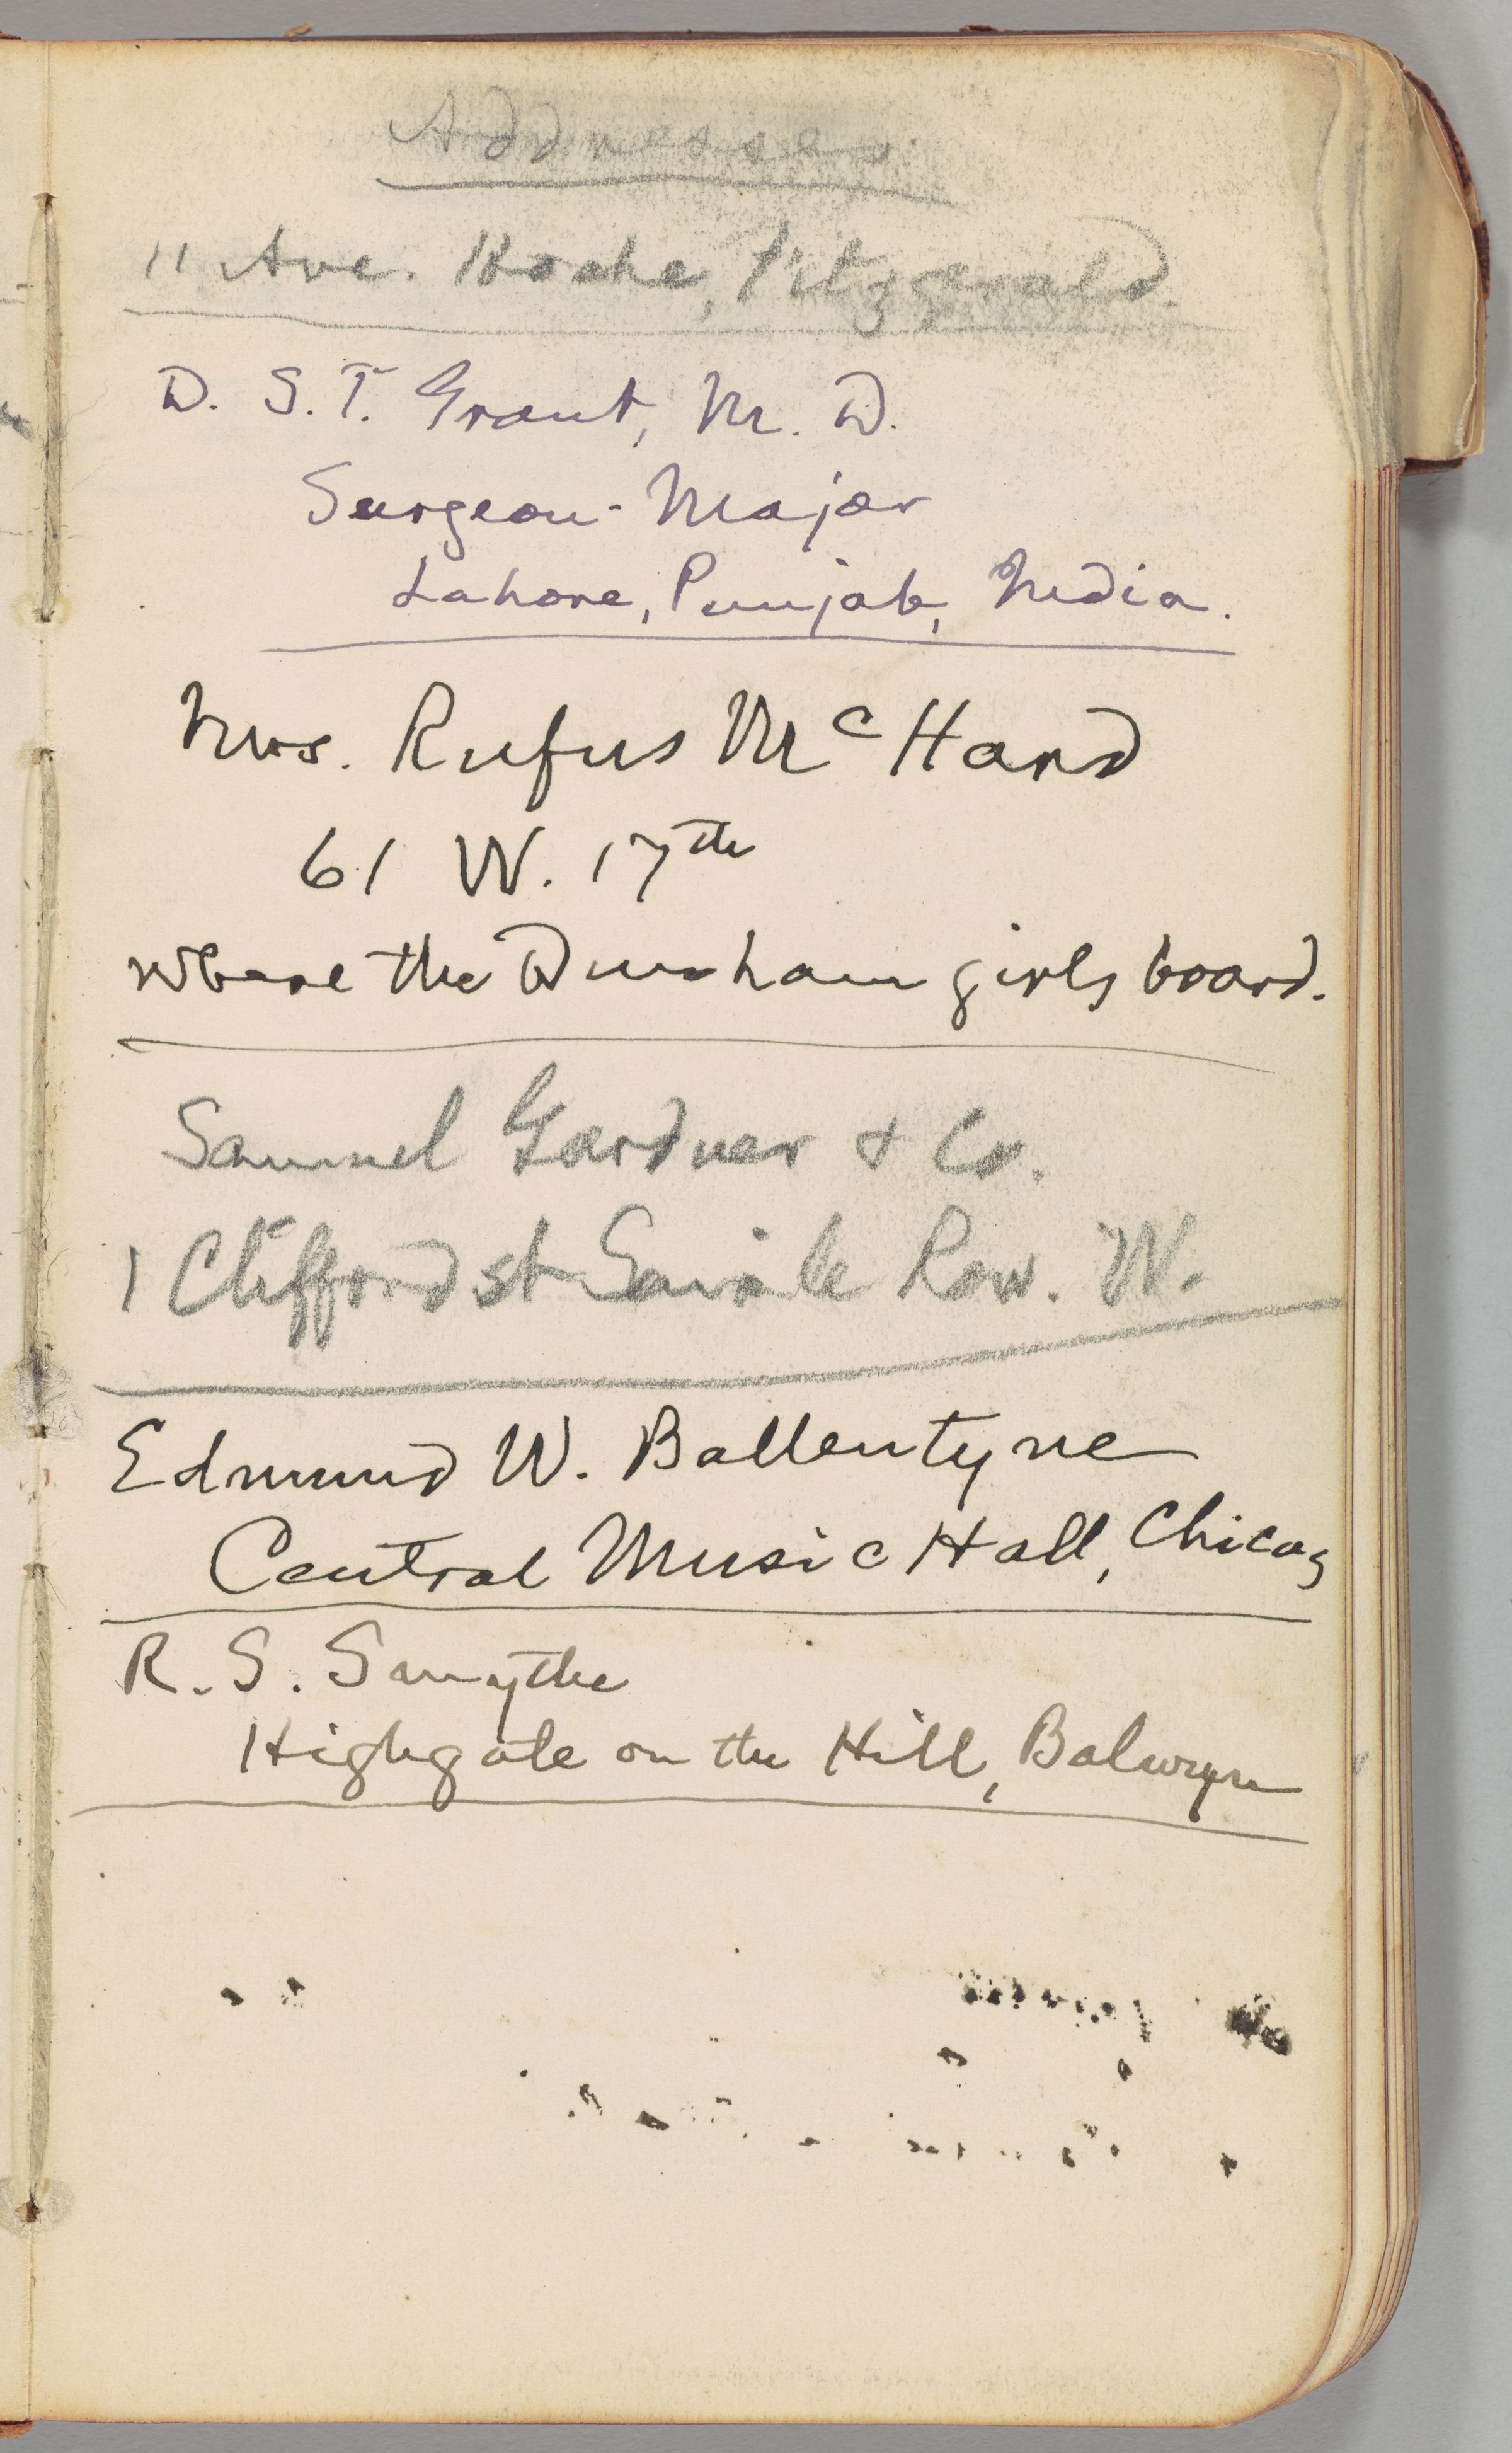 Addresses.
11 Ave. Hoche, Fitzgerald.
D. S. T. Grant, M. D.
Surgeon-Major
Lahore, Punjab, India.
Mrs. Rufus Mc Hard
61 W. 17th
where the Dunham girls board.
Samuel Gardner & Co.
1 Clifford st Savile Row. W.
Edmund W. Ballentyne
Central Music Hall, Chicag
R. S. Smythe
Highgate on the Hill, Balwyn